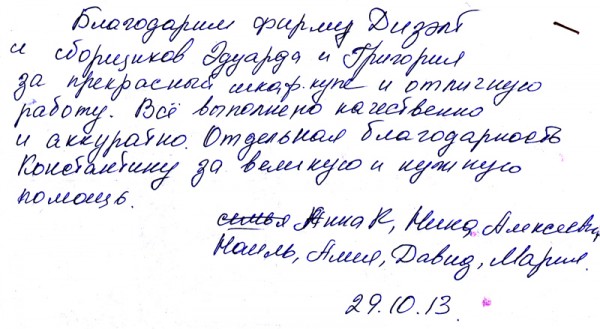 Благодарим фирму Дизэт
и сборщиков Эдуарда и Григория
за прекрасный шкаф.купе и отличную
работу. Всё выполнено качественно
и аккуратно. Отдельная благодарность
Константину за великую и нужную
помощь.
семья Анна К, Нина Алексеевна
Наиль, Амия, Давид, Мария.
29.10.13.